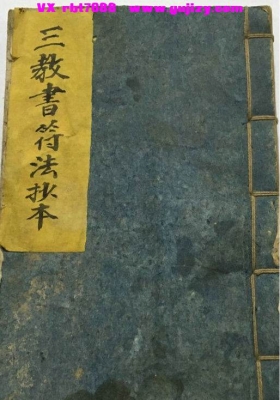 VX-rbt7888 www.gujizy.com
三教書符法抄本